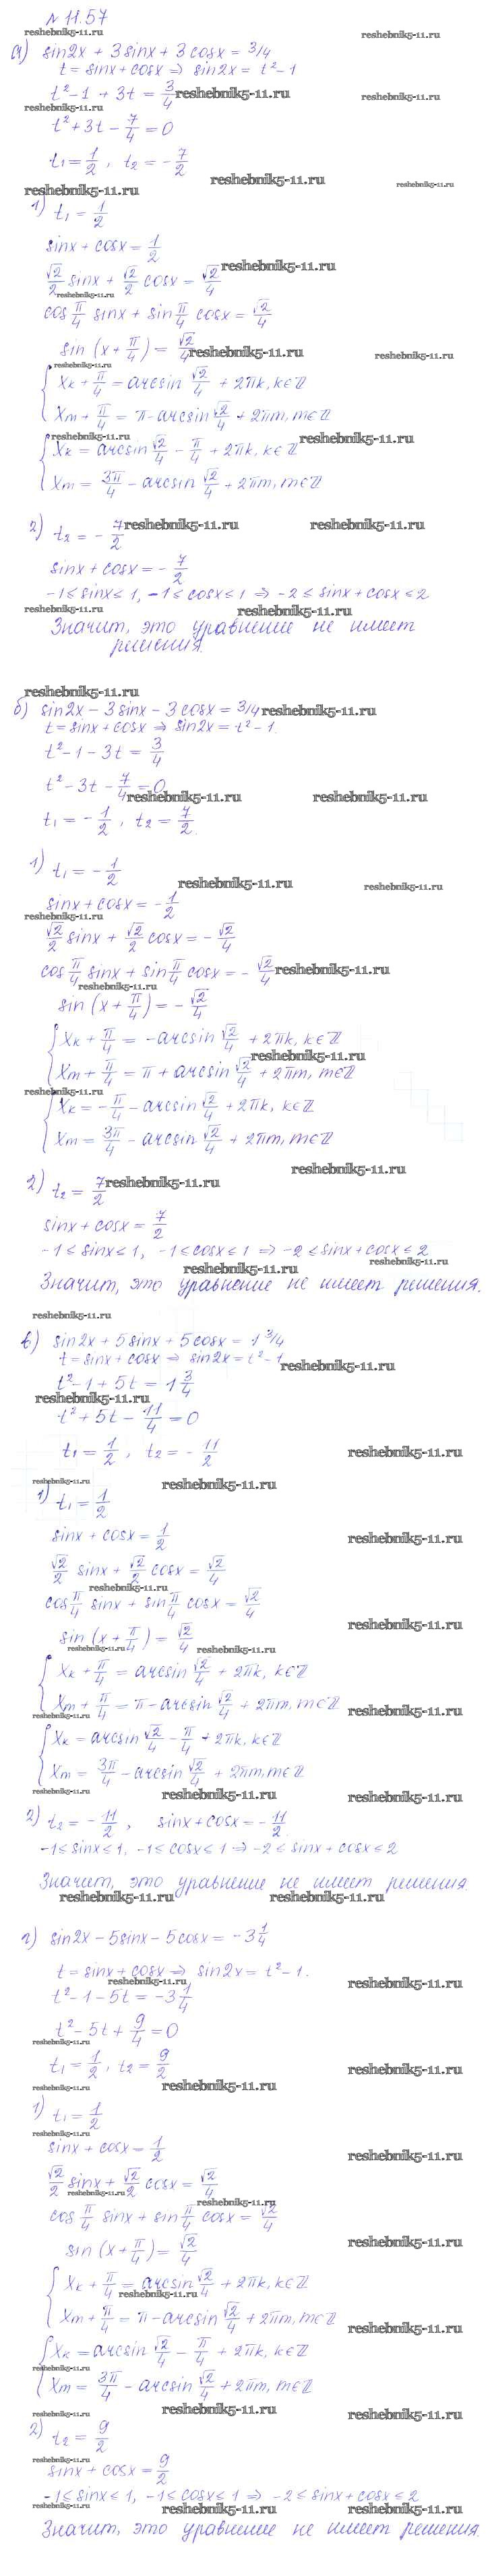 № 11.57
reshebnik5-11.ru reshebnik5-11.ru
а) sin2x + 3sinx + 3cosx = 3/4
t = sinx + cosx ⇒ sin2x = t² - 1
t² - 1 + 3t = 3/4 reshebnik5-11.ru
reshebnik5-11.ru
t² + 3t - 7/4 = 0
t₁ = 1/2, t₂ = -7/2
reshebnik5-11.ru reshebnik5-11.ru
reshebnik5-11.ru
1) t₁ = 1/2
sinx + cosx = 1/2
reshebnik5-11.ru
√2/2 sinx + √2/2 cosx = √2/4
reshebnik5-11.ru
cos π/4 sinx + sin π/4 cosx = √2/4
sin (x + π/4) = √2/4 reshebnik5-11.ru reshebnik5-11.ru
reshebnik5-11.ru
{ xk + π/4 = arcsin √2/4 + 2πk, k∈ℤ
xm + π/4 = π - arcsin √2/4 + 2πm, m∈ℤ
reshebnik5-11.ru reshebnik5-11.ru
{ xk = arcsin √2/4 - π/4 + 2πk, k∈ℤ
xm = 3π/4 - arcsin √2/4 + 2πm, m∈ℤ
2) t₂ = -7/2 reshebnik5-11.ru reshebnik5-11.ru
sinx + cosx = -7/2
-1 ≤ sinx ≤ 1, -1 ≤ cosx ≤ 1 ⇒ -2 ≤ sinx + cosx ≤ 2
reshebnik5-11.ru reshebnik5-11.ru
Значит, это уравнение не имеет
решения.
reshebnik5-11.ru
б) sin2x - 3sinx - 3cosx = 3/4 reshebnik5-11.ru
t = sinx + cosx ⇒ sin2x = t² - 1.
t² - 1 - 3t = 3/4
t² - 3t - 7/4 = 0
reshebnik5-11.ru reshebnik5-11.ru
t₁ = -1/2, t₂ = 7/2.
1) t₁ = -1/2
reshebnik5-11.ru reshebnik5-11.ru
sinx + cosx = -1/2
reshebnik5-11.ru
√2/2 sinx + √2/2 cosx = -√2/4
cos π/4 sinx + sin π/4 cosx = -√2/4 reshebnik5-11.ru
reshebnik5-11.ru
sin (x + π/4) = -√2/4
{ xk + π/4 = -arcsin √2/4 + 2πk, k∈ℤ
reshebnik5-11.ru
xm + π/4 = π + arcsin √2/4 + 2πm, m∈ℤ
reshebnik5-11.ru
{ xk = -π/4 - arcsin √2/4 + 2πk, k∈ℤ
xm = 3π/4 - arcsin √2/4 + 2πm, m∈ℤ
reshebnik5-11.ru
2) t₂ = 7/2 reshebnik5-11.ru
sinx + cosx = 7/2
-1 ≤ sinx ≤ 1, -1 ≤ cosx ≤ 1 ⇒ -2 ≤ sinx + cosx ≤ 2
reshebnik5-11.ru reshebnik5-11.ru
Значит, это уравнение не имеет решения.
reshebnik5-11.ru
в) sin2x + 5sinx + 5cosx = 1 3/4
t = sinx + cosx ⇒ sin2x = t² - 1
reshebnik5-11.ru
t² - 1 + 5t = 1 3/4
reshebnik5-11.ru
t² + 5t - 11/4 = 0
t₁ = 1/2, t₂ = -11/2 reshebnik5-11.ru
reshebnik5-11.ru reshebnik5-11.ru
1) t₁ = 1/2
sinx + cosx = 1/2 reshebnik5-11.ru
√2/2 sinx + √2/2 cosx = √2/4
reshebnik5-11.ru
cos π/4 sinx + sin π/4 cosx = √2/4
reshebnik5-11.ru
sin (x + π/4) = √2/4
reshebnik5-11.ru reshebnik5-11.ru
{ xk + π/4 = arcsin √2/4 + 2πk, k∈ℤ
xm + π/4 = π - arcsin √2/4 + 2πm, m∈ℤ
reshebnik5-11.ru reshebnik5-11.ru
{ xk = arcsin √2/4 - π/4 + 2πk, k∈ℤ
xm = 3π/4 - arcsin √2/4 + 2πm, m∈ℤ
reshebnik5-11.ru reshebnik5-11.ru reshebnik5-11.ru
2) t₂ = -11/2, sinx + cosx = -11/2.
-1 ≤ sinx ≤ 1, -1 ≤ cosx ≤ 1 ⇒ -2 ≤ sinx + cosx ≤ 2
Значит, это уравнение не имеет решения.
reshebnik5-11.ru reshebnik5-11.ru
г) sin2x - 5sinx - 5cosx = -3 1/4
t = sinx + cosx ⇒ sin2x = t² - 1.
reshebnik5-11.ru reshebnik5-11.ru
t² - 1 - 5t = -3 1/4
t² - 5t + 9/4 = 0
reshebnik5-11.ru
t₁ = 1/2, t₂ = 9/2 reshebnik5-11.ru
reshebnik5-11.ru reshebnik5-11.ru
1) t₁ = 1/2
reshebnik5-11.ru
sinx + cosx = 1/2 reshebnik5-11.ru
√2/2 sinx + √2/2 cosx = √2/4
reshebnik5-11.ru reshebnik5-11.ru
cos π/4 sinx + sin π/4 cosx = √2/4
sin (x + π/4) = √2/4 reshebnik5-11.ru
{ xk + π/4 = arcsin √2/4 + 2πk, k∈ℤ
reshebnik5-11.ru
xm + π/4 = π - arcsin √2/4 + 2πm, m∈ℤ
reshebnik5-11.ru
{ xk = arcsin √2/4 - π/4 + 2πk, k∈ℤ
reshebnik5-11.ru
xm = 3π/4 - arcsin √2/4 + 2πm, m∈ℤ
reshebnik5-11.ru reshebnik5-11.ru reshebnik5-11.ru
2) t₂ = 9/2
reshebnik5-11.ru
sinx + cosx = 9/2
-1 ≤ sinx ≤ 1, -1 ≤ cosx ≤ 1 ⇒ -2 ≤ sinx + cosx ≤ 2
reshebnik5-11.ru reshebnik5-11.ru reshebnik5-11.ru
Значит, это уравнение не имеет решения.